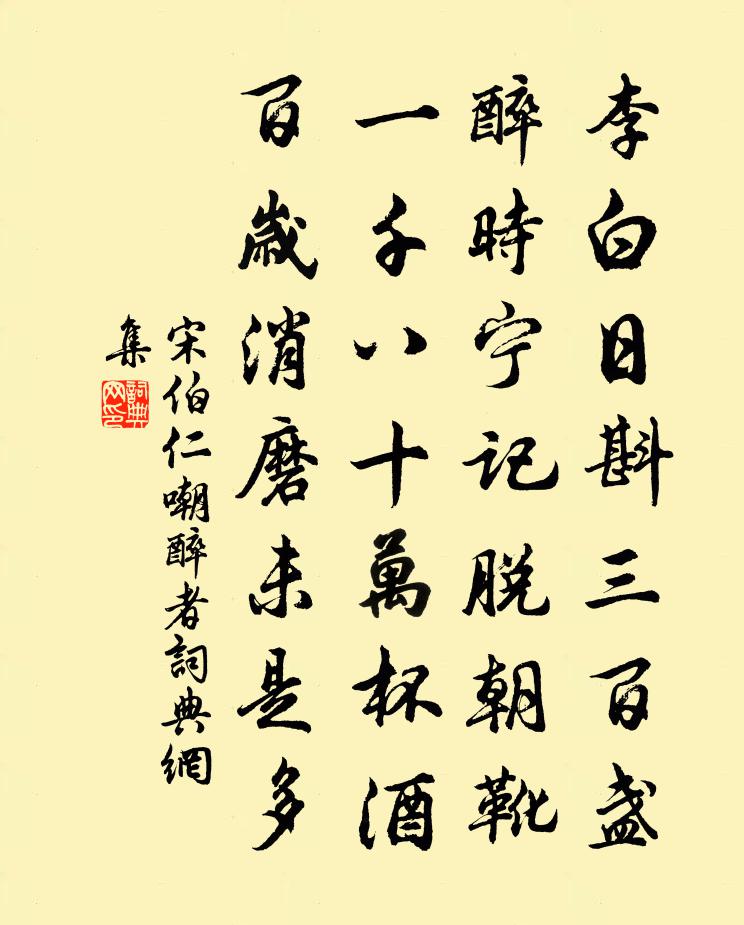 李白日斟三百盏
醉時宁记脱朝靴
一千八十萬杯酒
百歳消磨未是多
宋伯仁嘲醉者詞典網
集
詞典网印